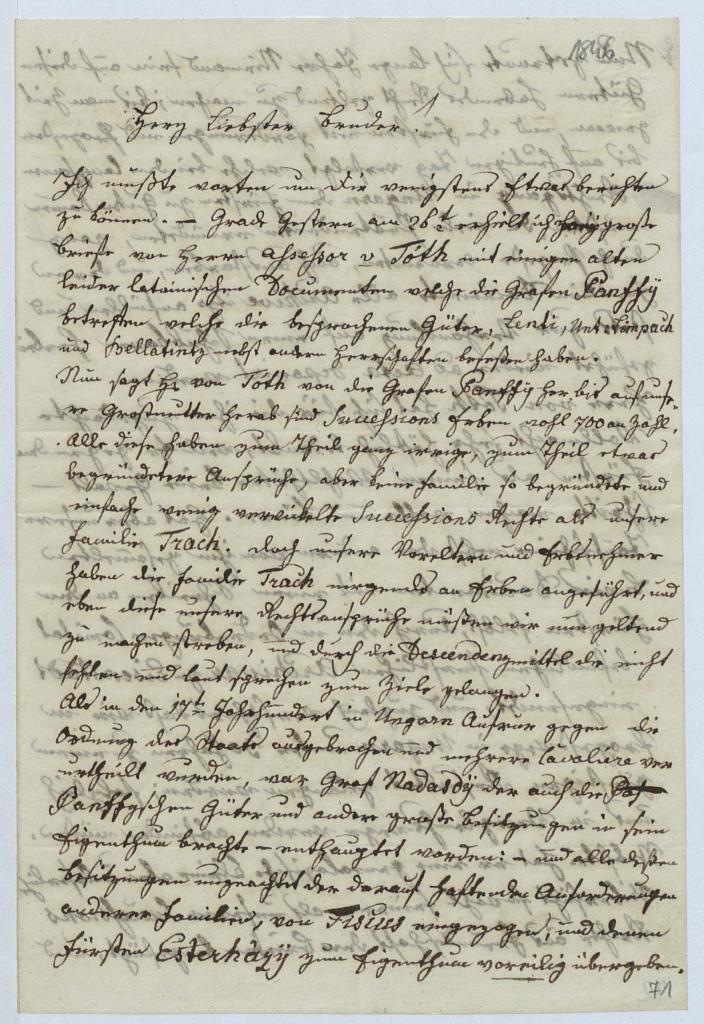 1846
Herz Liebster Bruder!
Ich mußte warten um Dir wenigstens Etwas berichten
zu können. – Grade Gestern am 26t. erhielt ich große
briefe von Herrn Assessor v Tóth mit einigen alten
leider lateinischen Documenten welche die Grafen Banffÿ
betreffen welche die besprochenen Güter, Lenti, Unt. Limpach
und Bellatintz nebst andern Herrschaften beseßen haben.
Nun sagt Hr von Tóth von die Grafen Banffÿ her, bis auf unse-
re Großmutter herab sind Successions Erben wohl 700 an Zahl.
Alle diese haben zum Theil ganz irrige, zum Theil etwas
begründetere Ansprüche, aber keine Familie so begründete und
einfache wenig verwickelte Successions Rechte als unsere
Familie Trach. Doch unsere Voreltern und Erbnehmer
haben die Familie Trach nirgends an Erben angeführt, und
eben diese unsere Rechtsansprüche müßen wir nun geltend
zu machen streben, und durch die Descendenzmittel die nicht
fehlen und laut sprechen zum Ziele gelangen.
Als in den 17ten Jahrhundert in Ungarn Aufrur gegen die
Ordnung des Staats ausgebrochen und mehrere Cavaliere ver
urtheilt wurden, war Graf Nadasdÿ der auch die
Banffyschen Güter und andere große Besitzungen in sein
Eigenthum brachte – enthauptet worden: – und alle deßen
Besitzungen ungeachtet der darauf haftenden Anforderungen
anderer Familien, von Fiscus eingezogen, und denen
Fürsten Esterházÿ zum Eigenthum voreilig übergeben.
71